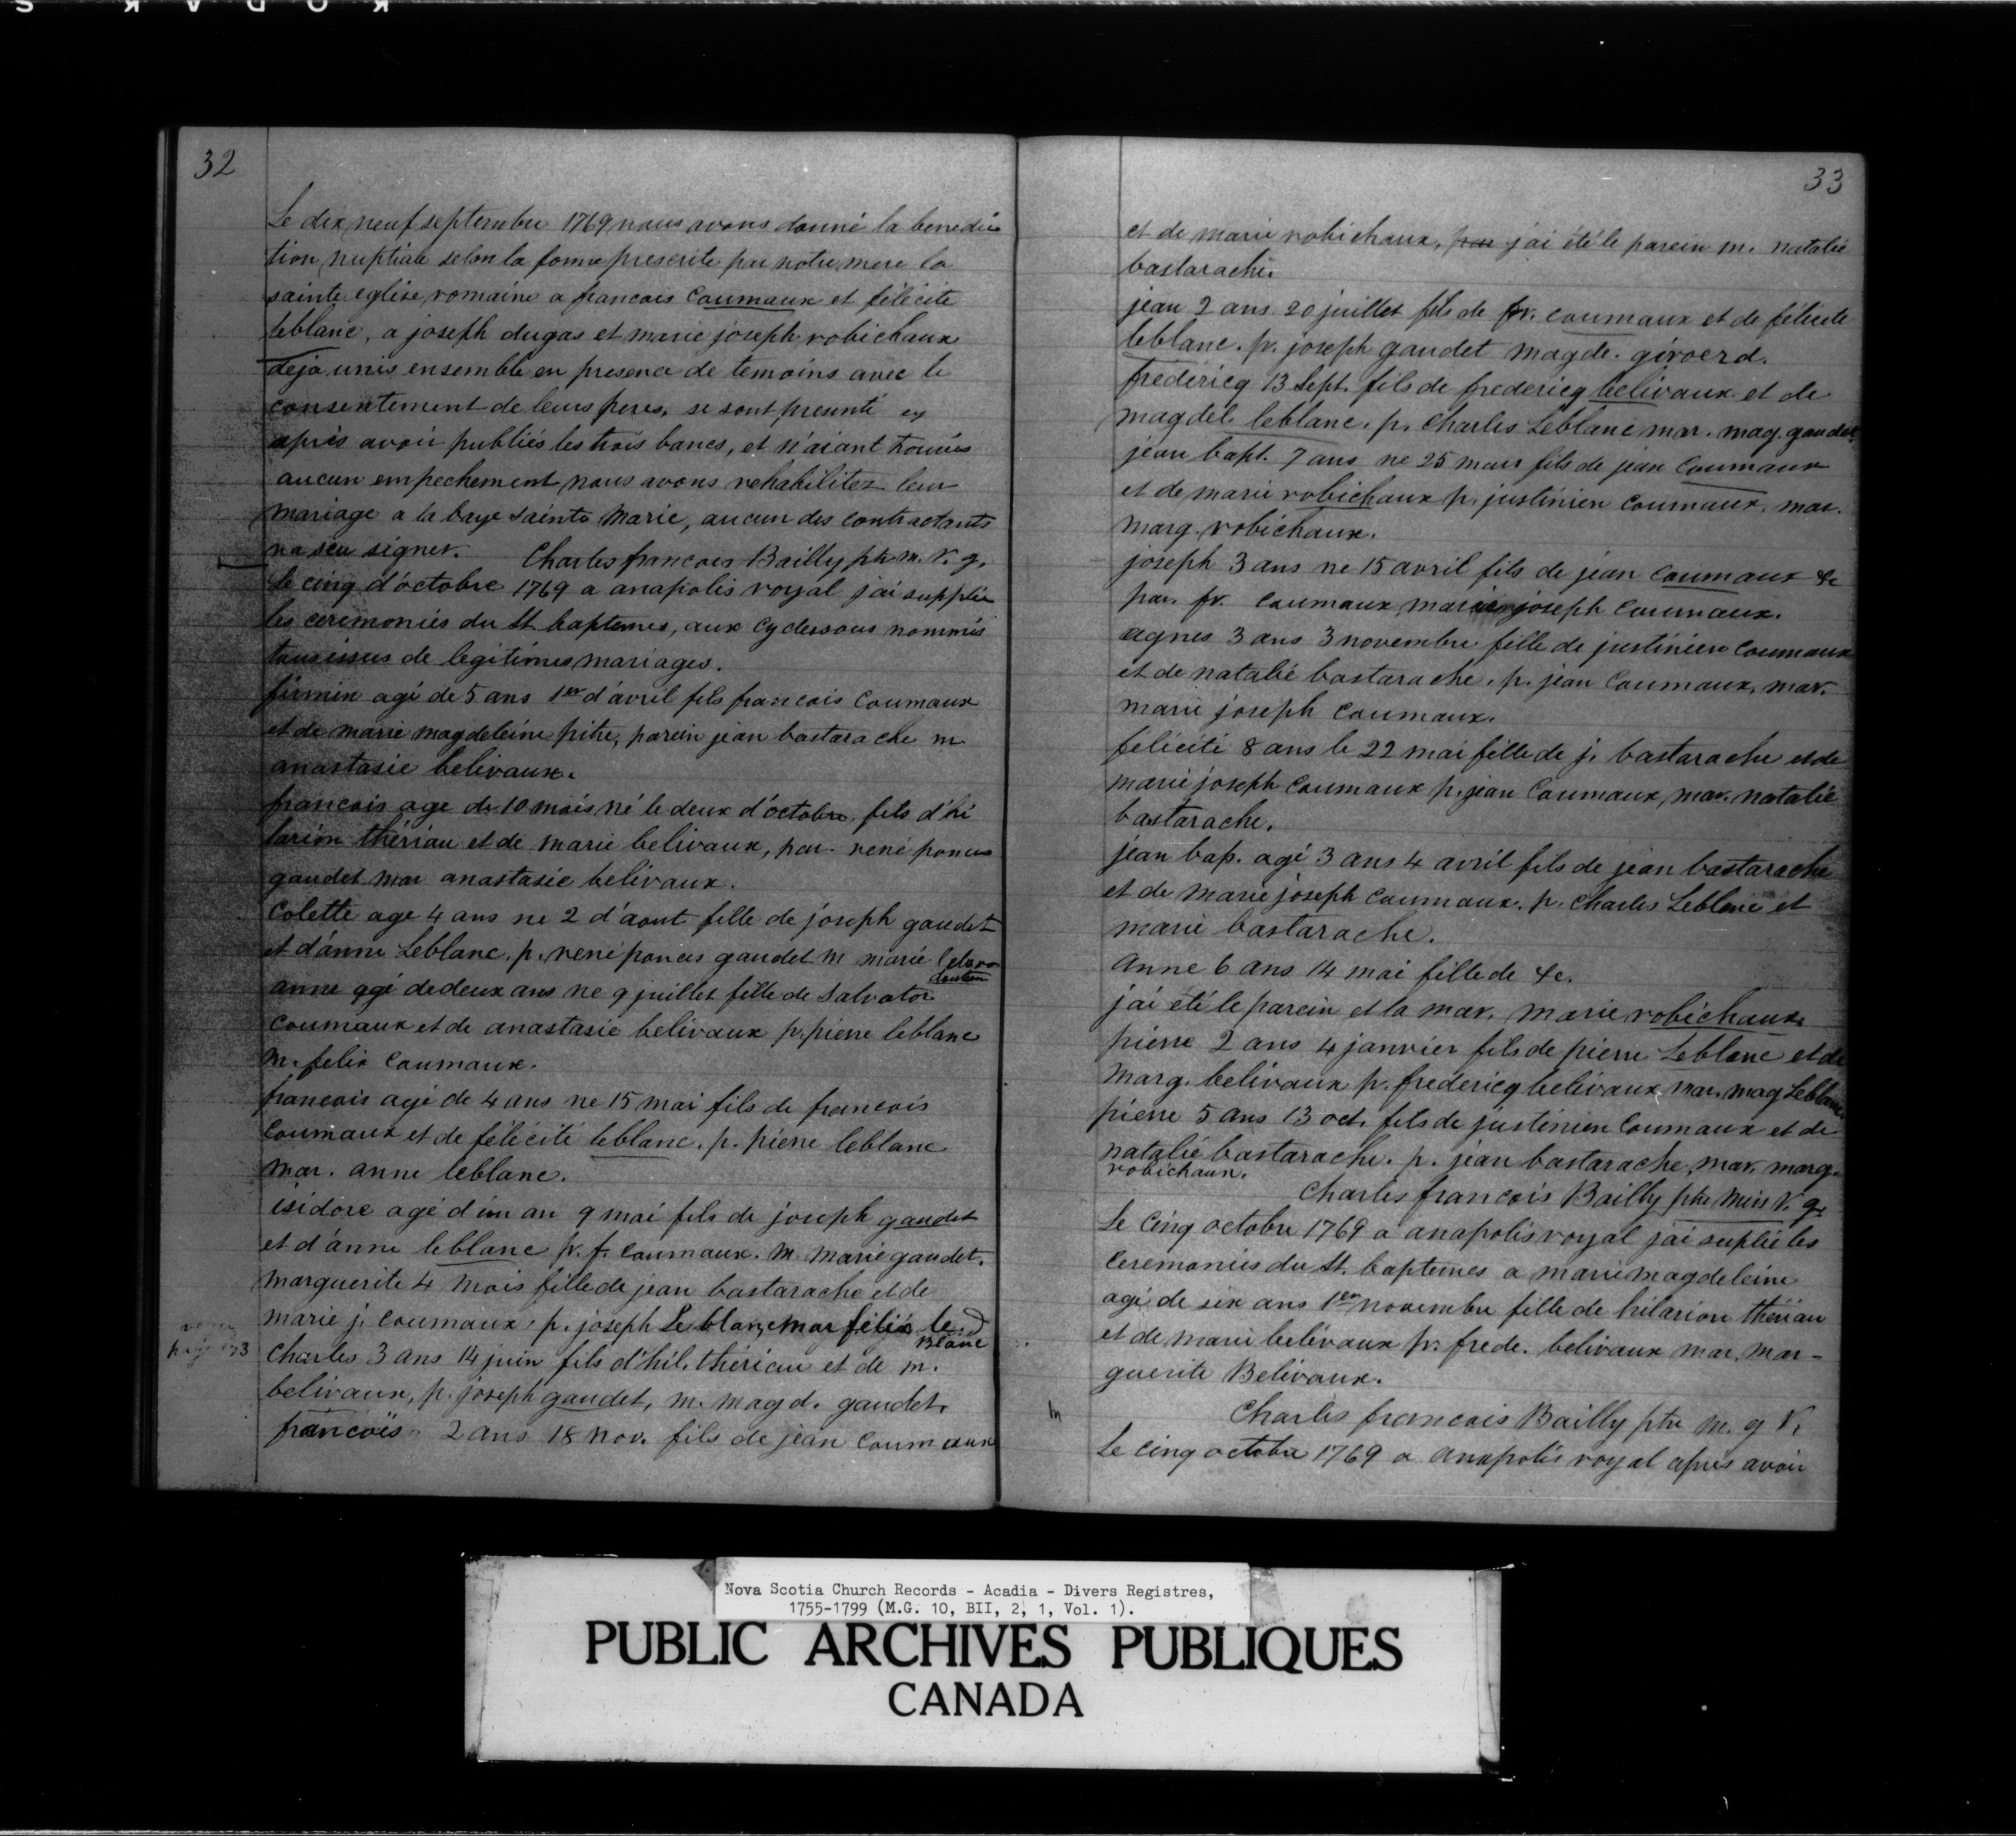 KODAK S
32
Le dix neuf septembre 1769 nous avons donné la benedic
tion nuptiale selon la forme prescrite par notre mere la
sainte eglise romaine a francois Coumaux et félécité
leblanc, a joseph dugas et marie joseph robichaux
deja unis ensemble en presence de temoins avec le
consentement de leurs peres, se sont presenté ey
après avoir publiés les trois bancs, et n'aiant trouvés
aucun empechement nous avons rehabilitez leur
mariage a la baye sainte Marie, aucun des contractants
na seu signer. Charles francois Bailly ptr m. v. g.
Le cinq d'octobre 1769 a anapolis royal j'ai supplée
les ceremonies du St baptemes, aux cy dessous nommés
tous issus de legitimes mariages.
firmin agé de 5 ans 1er d'avril fils francois Coumaux
et de marie magdeleine pitre, parein jean bastarache m
anastasie belivaux.
francois age de 10 mois né le deux d'octobre, fils d'hi
larion thériau et de marie belivaux, par. rené poncis
gaudet mar anastasie belivaux.
Colette age 4 ans ne 2 d'aout fille de joseph gaudet
et d'anne Leblanc. p. rené poncis gaudet m marie
anne agé de deux ans ne 9 juillet fille de Salvator
Coumaux et de anastasie belivaux p. pierre leblanc
m. felix Coumaux.
francois agé de 4 ans ne 15 mai fils de francois
Coumaux et de félécité leblanc. p. pierre leblanc
mar. anne leblanc.
isidore agé d'un an 9 mai fils de joseph gaudet
et d'anne leblanc p. f. Coumaux. m marie gaudet.
Marguerite 4 mois fille de jean bastarache et de
marie j. Coumaux, p. joseph Leblanc mar félix le
Blanc
Charles 3 ans 14 juin fils d'hil. thériau et de m.
belivaux, p. joseph gaudet, m. magd. gaudet.
francois 2 ans 18 nov. fils de jean Coumaux
33
et de marie robichaux, par j'ai été le parein m. natalie
bastarache.
jean 2 ans 20 juillet fils de fr. Coumaux et de félicité
leblanc. p. joseph gaudet magde. giroerd.
fredericq 13 Sept. fils de fredericq belivaux et de
magdel. leblanc. p. Charles Leblanc mar. mag. gaudet
jean bapt. 7 ans ne 25 mars fils de jean Coumaux
et de marie robichaux p. justinien Coumaux, mar.
marg. robichaux.
joseph 3 ans ne 15 avril fils de jean Coumaux &c
par. fr. Coumaux, marie joseph Coumaux.
agnes 3 ans 3 novembre fille de justinien Coumaux
et de natalié bastarache. p. jean Coumaux, mar.
marie joseph Coumaux.
félicité 8 ans le 22 mai fille de j. bastarache et de
marie joseph Coumaux p. jean Coumaux, mar. natalié
bastarache.
jean bap. agé 3 ans 4 avril fils de jean bastarache
et de marie joseph Coumaux. p. Charles Leblanc et
marie bastarache.
anne 6 ans 14 mai fille de &c.
j'ai été le parein et la mar. marie robichaux.
pierre 2 ans 4 janvier fils de pierre Leblanc et de
marg. belivaux p. fredericq belivaux, mar. mag Leblanc.
pierre 5 ans 13 oct. fils de justinien Coumaux et de
natalié bastarache. p. jean bastarache, mar. marg.
robichaux.
Charles francois Bailly ptre miss V. g.
Le Cinq octobre 1769 a anapolis royal jai suplié les
ceremonies du St. baptemes a marie magdeleine
agé de six ans 1er novembre fille de hilarion thériau
et de marie belivaux p. frede. belivaux mar. mar-
guerite Belivaux.
Charles francois Bailly ptre m. g V.
Le Cinq octobre 1769 a anapolis royal apres avoir
Nova Scotia Church Records - Acadia - Divers Registres,
1755-1799 (M.G. 10, BII, 2, 1, Vol. 1).
PUBLIC ARCHIVES PUBLIQUES
CANADA